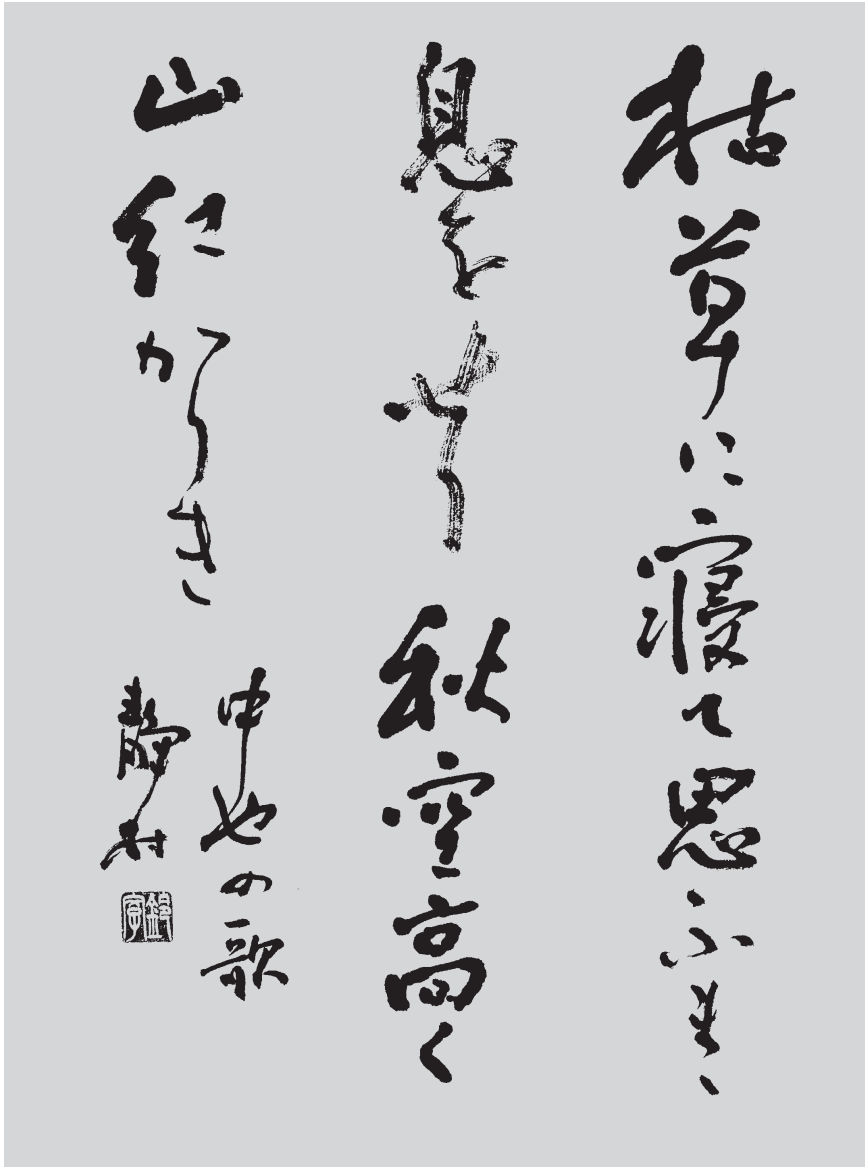 枯草に寝て思ふまゝ
息をせり 秋空高く
山紅かりき
中也の歌
静村